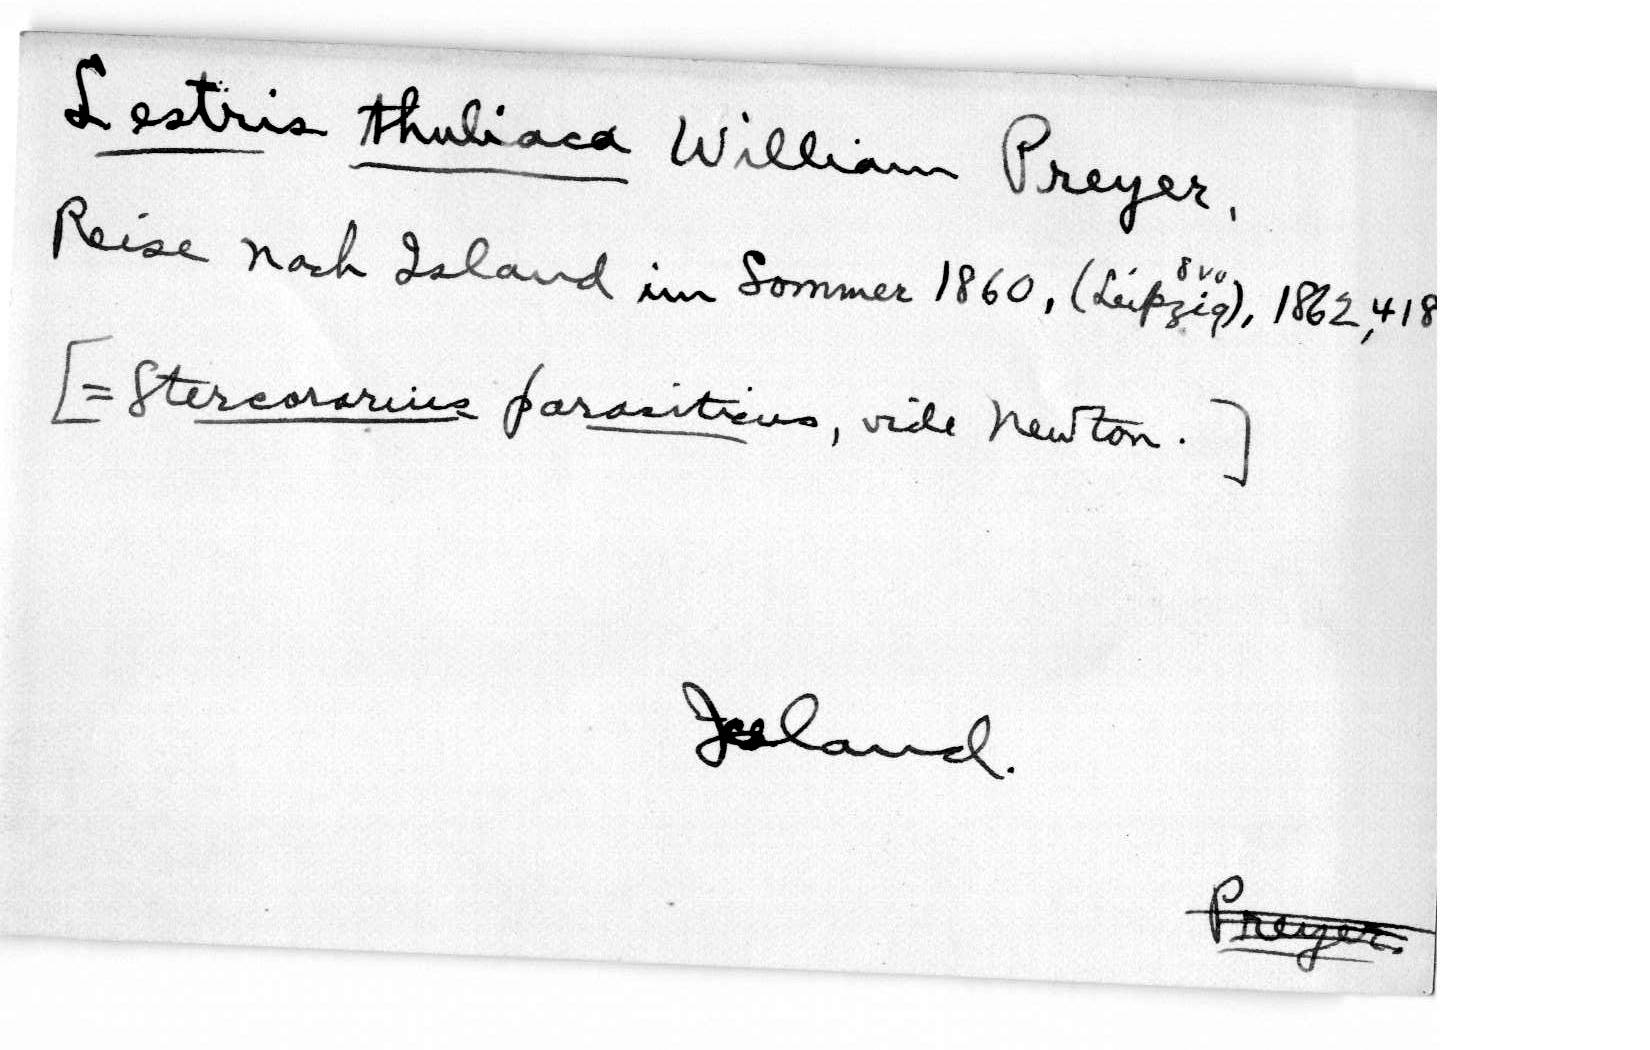 Lestris thuliaca William Preyer,
Reise nach Island im Sommer 1860, (Leipzig), 8vo 1862, 418
[= Stercorarius parasiticus, vide Newton.]
Island.
Preyer.